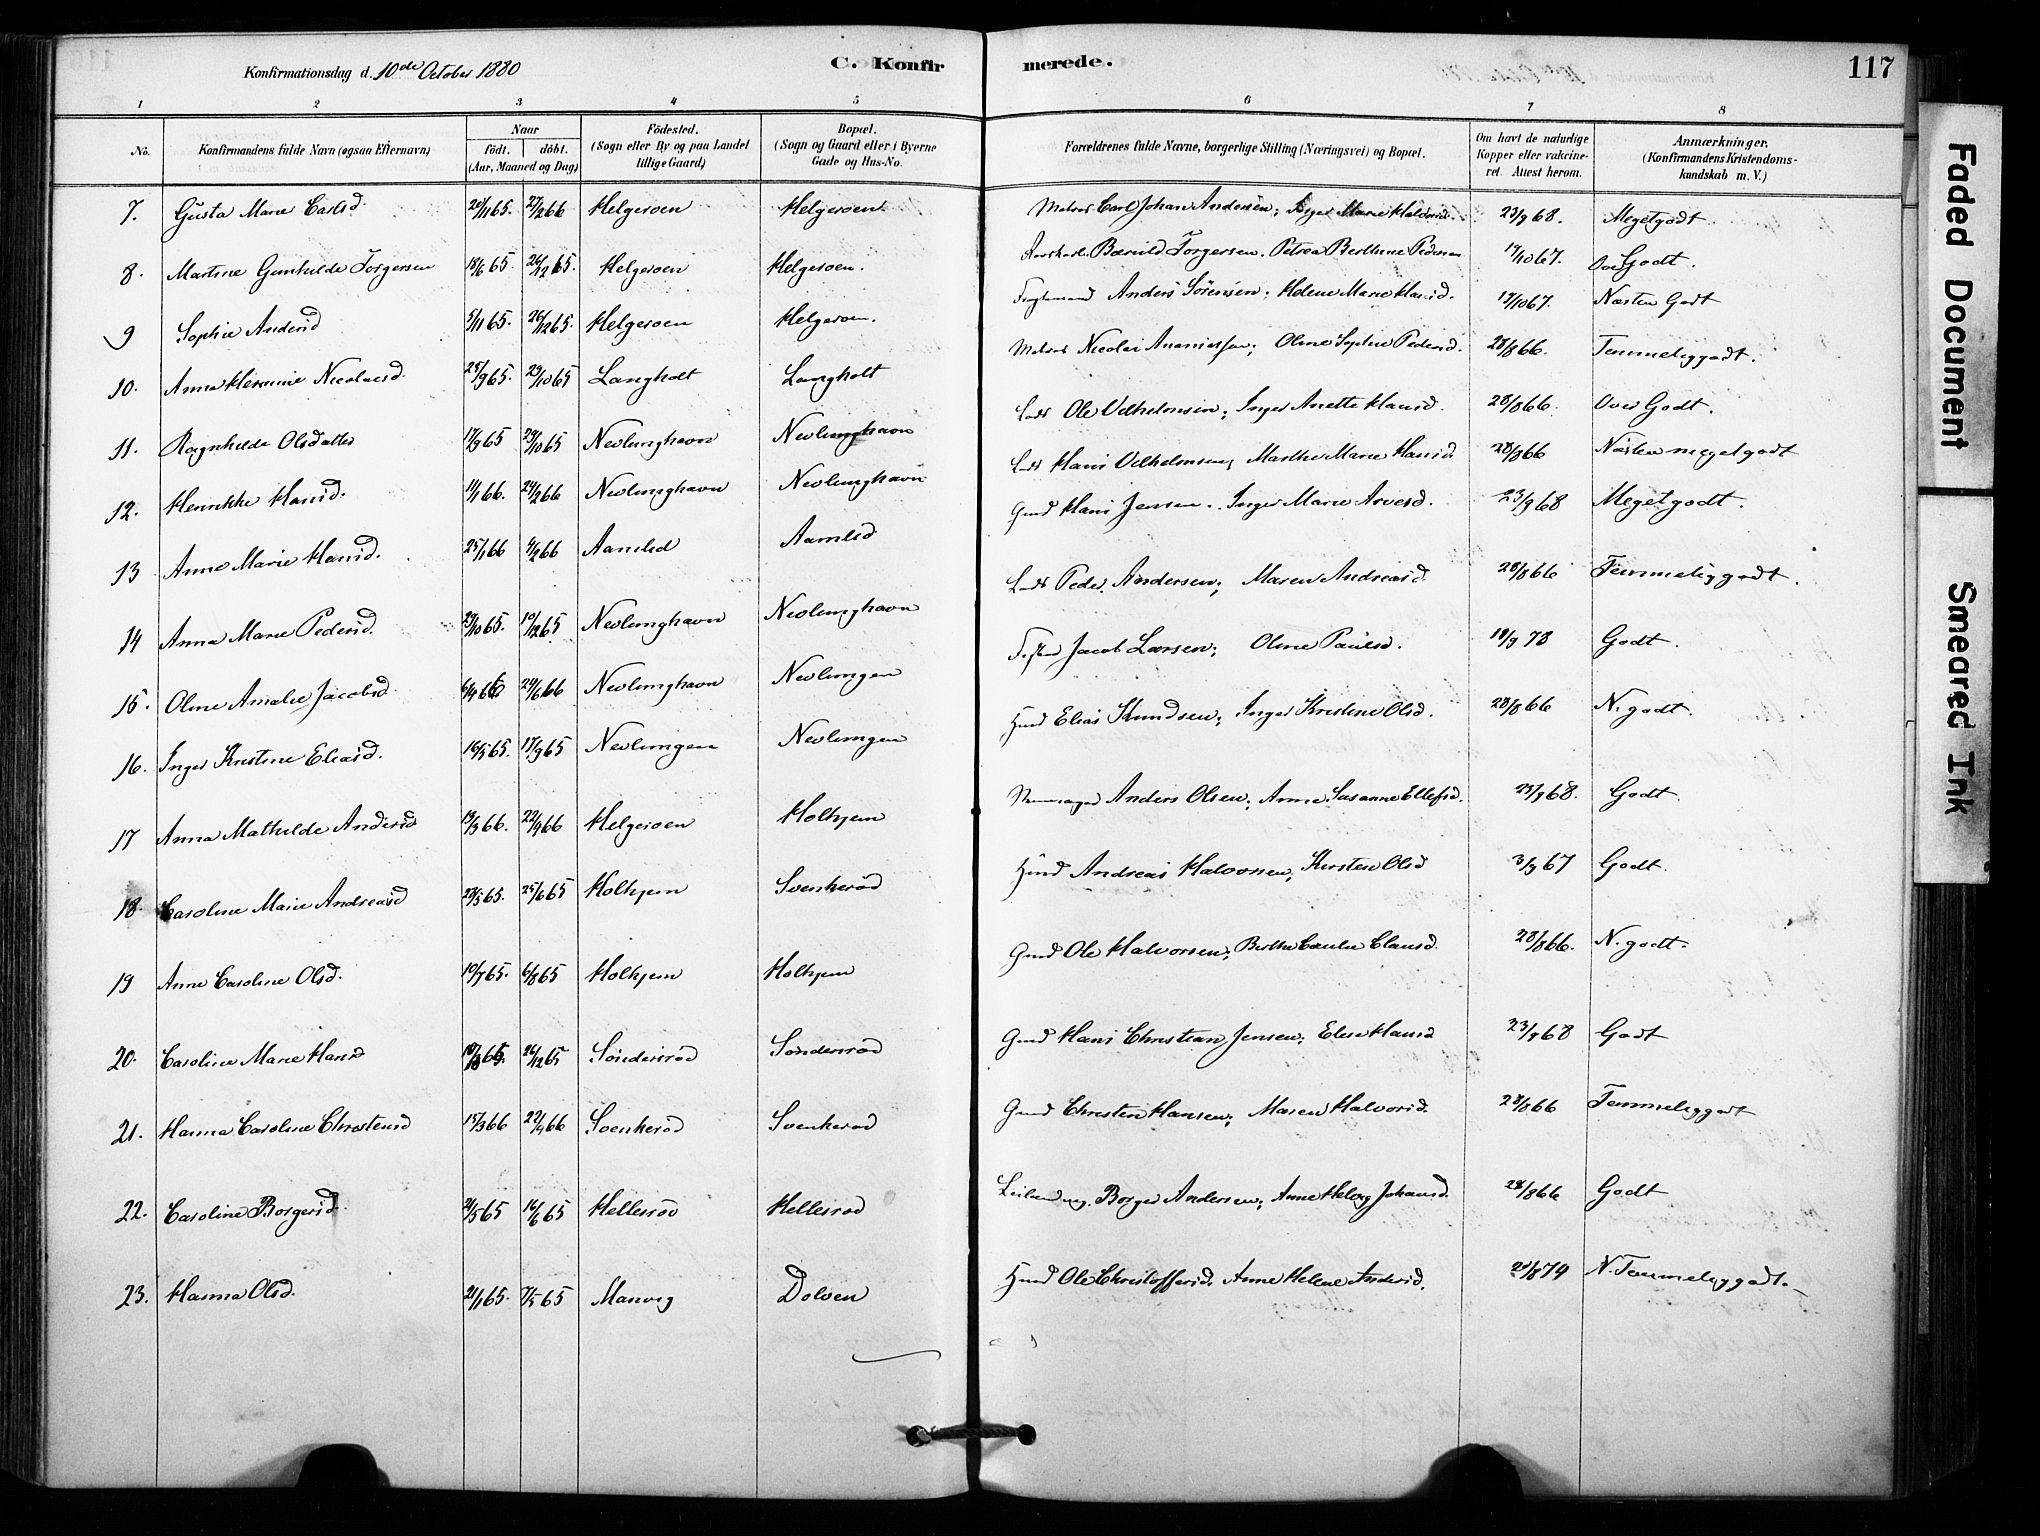 Konfirmationsdag d. 10de October 1880
C. Konfir
merede.
117
1 2 3 4 5 6 7 8
No.
Konfirmandens fulde Navn (ogsaa Efternavn)
Naar
födt. döbt.
(Aar, Maaned og Dag)
Födested.
(Sogn eller By og paa Landet
tillige Gaard)
Bopæl.
(Sogn og Gaard eller i Byerne
Gade og Hus-No.
Forældrenes fulde Navne, borgerlige Stilling (Næringsvei) og Bopæl.
Om havt de naturlige
Kopper eller vakcine-
ret. Attest herom.
Anmærkninger.
(Konfirmandens Kristendoms-
kundskab m. V.)
7. Gusta Marie Carlsd. 20/11 65. 27/2 66 Helgeroen Helgeroen Matros Carl Johan Andersen; Inger Marie Halvorsd. 23/9 68. Meget godt.
8. Martine Gunhilde Torgersen 18/6 65. 26/12 65. Helgeroen Helgeroen. Torgersen. Petrea Berthine Pedersen 17/10 67. Over Godt.
9 Sophie Andersd 5/11 65. 26/12 65. Helgeroen Helgeroen. Anders Sörensen; Helene Marie Hansd. 17/10 67. Næsten Godt
10. Anna Hermine Nicolaisd. 25/9 65. 29/10 65 Langholt Langholt Matros Nicolai Ananiassen; Oline Sophie Pedersd. 28/8 66. Temmelig godt.
11. Ragnhilde Olsdatter 17/9 65 29/10 65 Nevlunghavn Nevlunghavn Lods Ole Vilhelmsen; Inger Anette Hansd. 28/8 66. Over Godt.
12. Henrikke Hansd. 11/1 66. 24/2 66 Nevlunghavn Nevlunghavn Lods Hans Vilhelmsen; Marthe Marie Hansd. 28/8 66 Næsten meget godt
13 Anne Marie Hansd. 25/1 66 4/2 66 Aamlid Aamlid Gmd Hans Jensen. Inger Marie Arvesd. 23/9 68 Meget godt.
14 Anna Marie Pedersd. 29/10 65. 10/12 65 Nevlunghavn Nevlunghavn Lods Peder Andersen; Maren Andreasd. 28/8 66 Temmelig godt.
15. Oline Amalie Jacobsd. 29/6 66 Nevlunghavn Nevlungen Jacob Larsen; Oline Paulsd. 78 Godt.
16. Inger Kristine Eliasd. 16/5 65. 17/9 65 Nevlungen Nevlungen Hmd Elias Knudsen; Inger Kristine Olsd. 28/8 66 N. godt.
17 Anna Mathilde Andersd 13/3 66. 22/4 66 Helgeroen Holhjem Anders Olsen; Anne Susanne Ellefsd. 23/9 68. Godt.
18. Caroline Marie Andreasd 29/5 65. 25/6 65 Holhjem Svenkeröd Hmd Andreas Halvorsen; Kirsten Olsd 3/9 67 Godt.
19 Anne Caroline Olsd. 10/7 65. 6/8 65 Holhjem Holhjem Gmd Ole Halvorsen; Berthe Clausd. 28/8 66. N. godt.
20. Caroline Marie Hansd 65. 26/12 65 Söndersröd Söndersröd Gmd Hans Christian Jensen; Elise Hansd 23/9 68 Godt
21. Hanna Caroline Christensd 15/3 66 22/4 66 Svenkeröd Svenkeröd Gmd Christen Hansen; Maren Halvorsd. 28/8 66 Temmelig godt
22. Caroline Borgersd. 2/5 65 16/6 65 Hellesröd Hellesröd Borger Andersen; Anne Helvig Johansd. 28/8 66 Godt
23. Hanna Olsd. 21/1 65. 7/5 65 Manvig Dolven Hmd Ole Christoffersd. Anne Helene Andersd. 21/8 79 N. Temmelig godt.
Faded Document
Smeared Ink